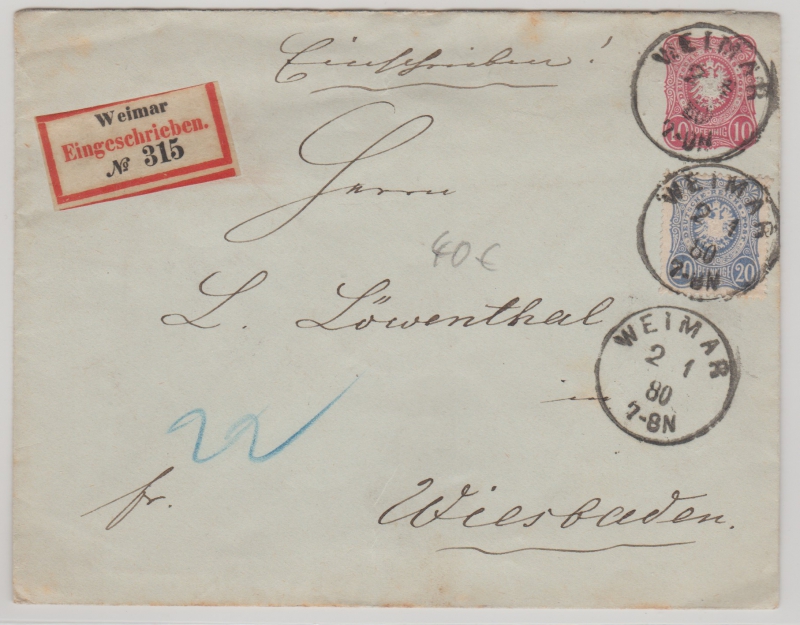 Einschreiben!
Weimar
Eingeschrieben.
№ 315
WEIMAR
2 1
80
7-8N
10 PFENNIG 10
Herrn
40€
WEIMAR
2 1
80
7-8N
20 PFENNIGE 20
L. Löwenthal
in
WEIMAR
2 1
80
7-8N
22
fr.
Wiesbaden.